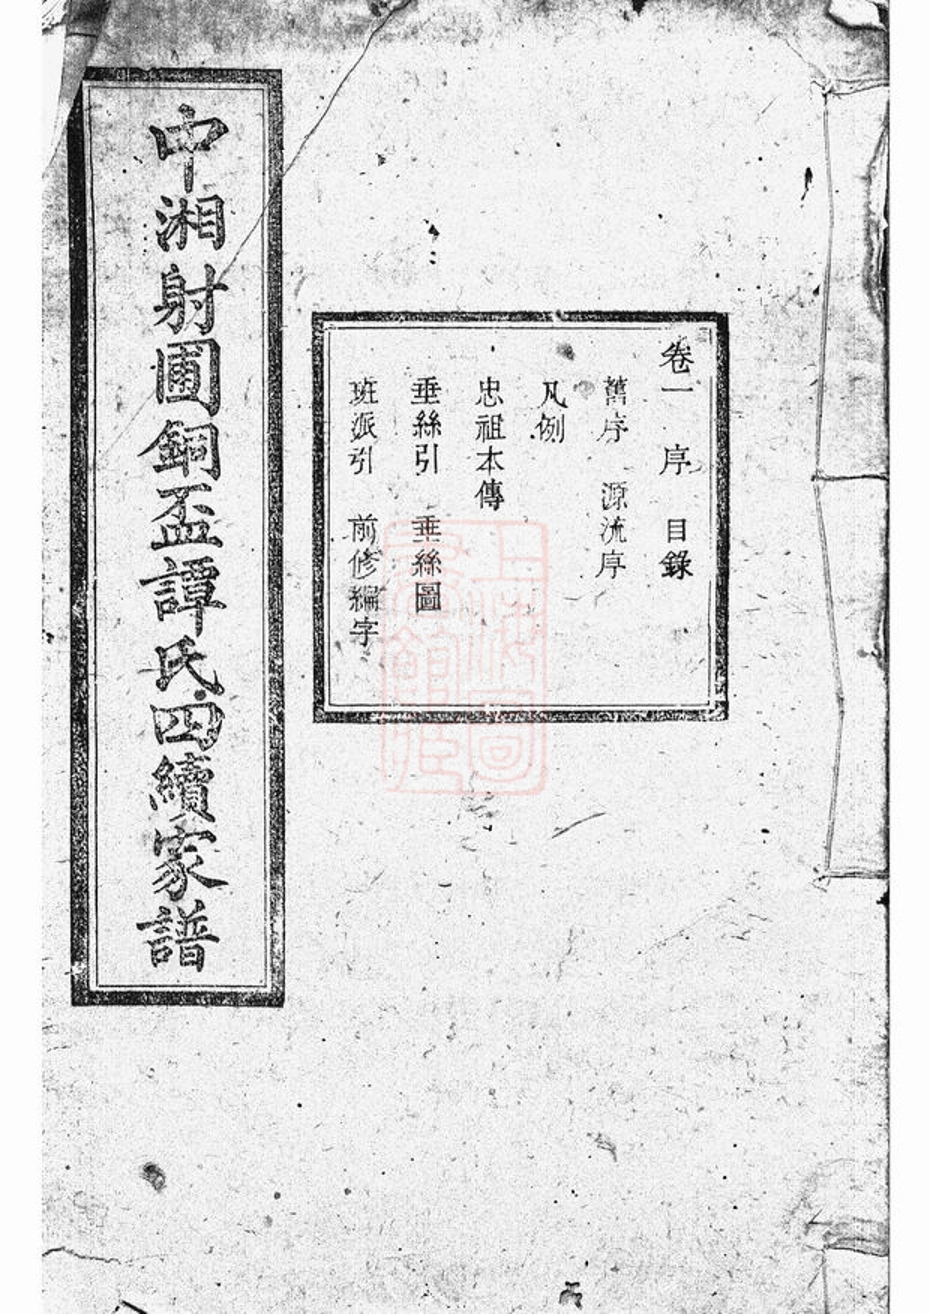 卷一 序 目錄
舊序 源流序
凡例
忠祖本傳
垂絲引 垂絲圖
班派引 前修編字
中湘射圃銅盃譚氏四續家譜
上海圖
書館藏